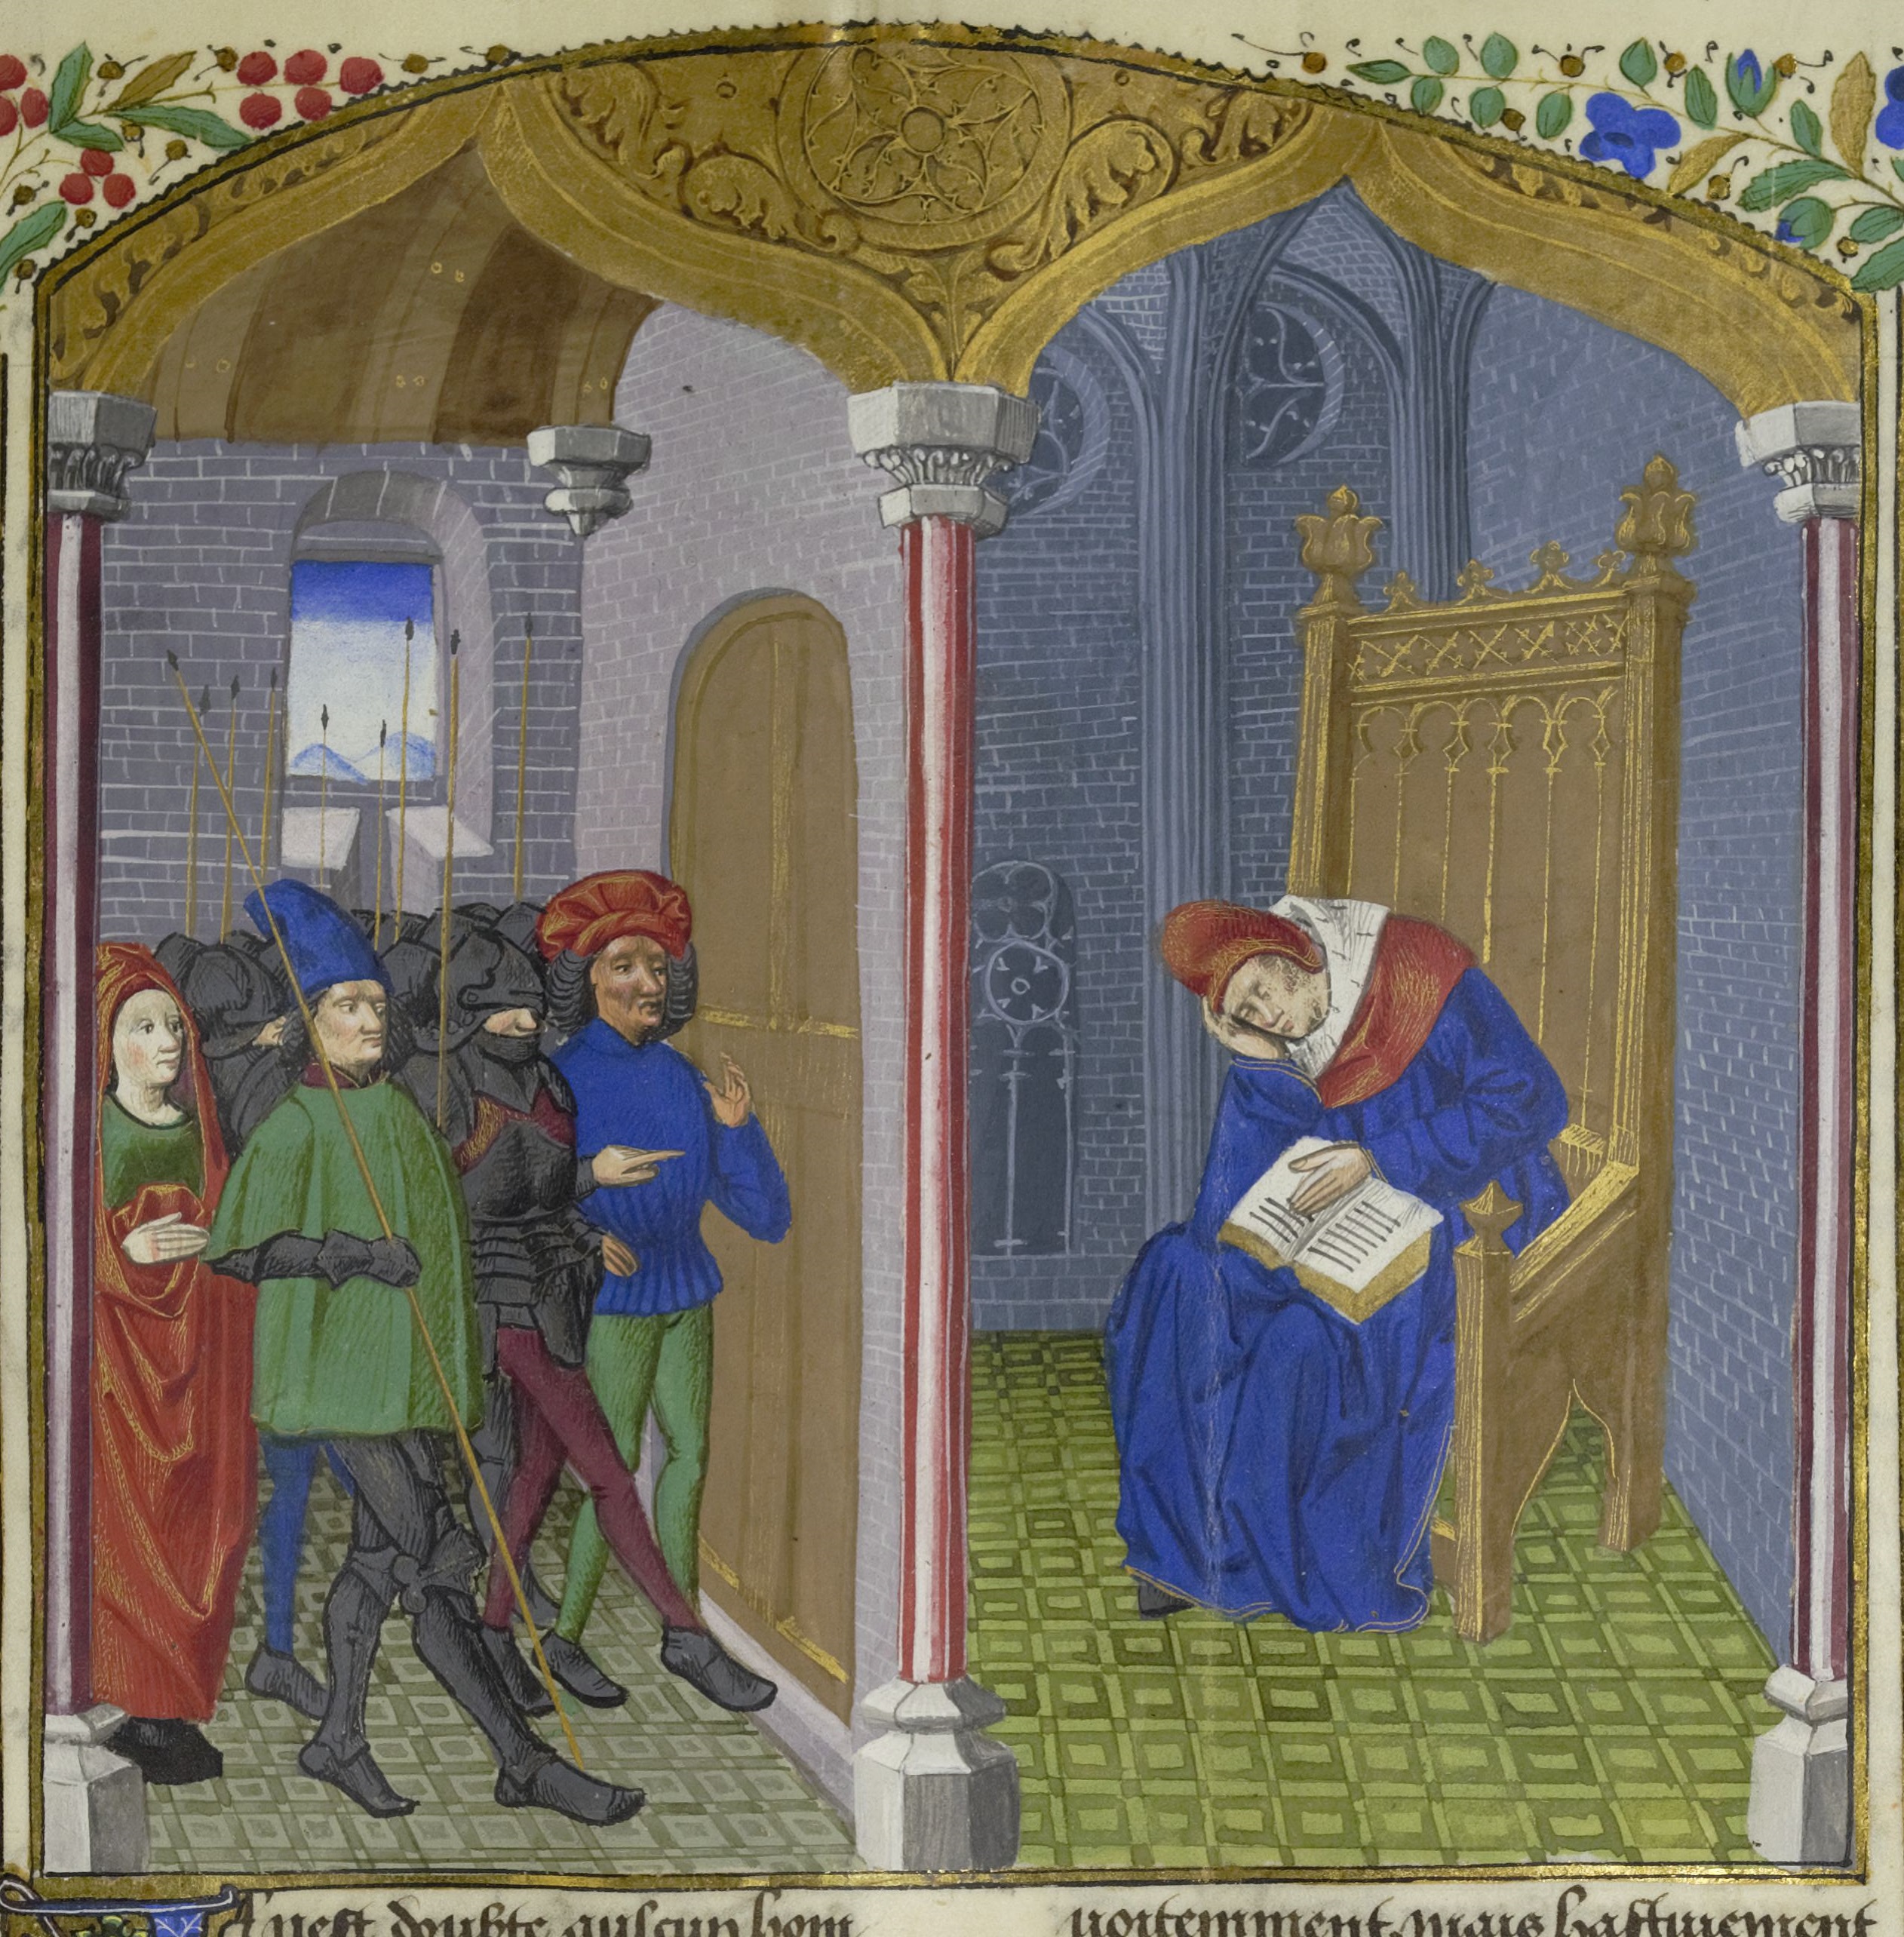 uest doubte aulcun hom
uoitemment, mais hastiuement